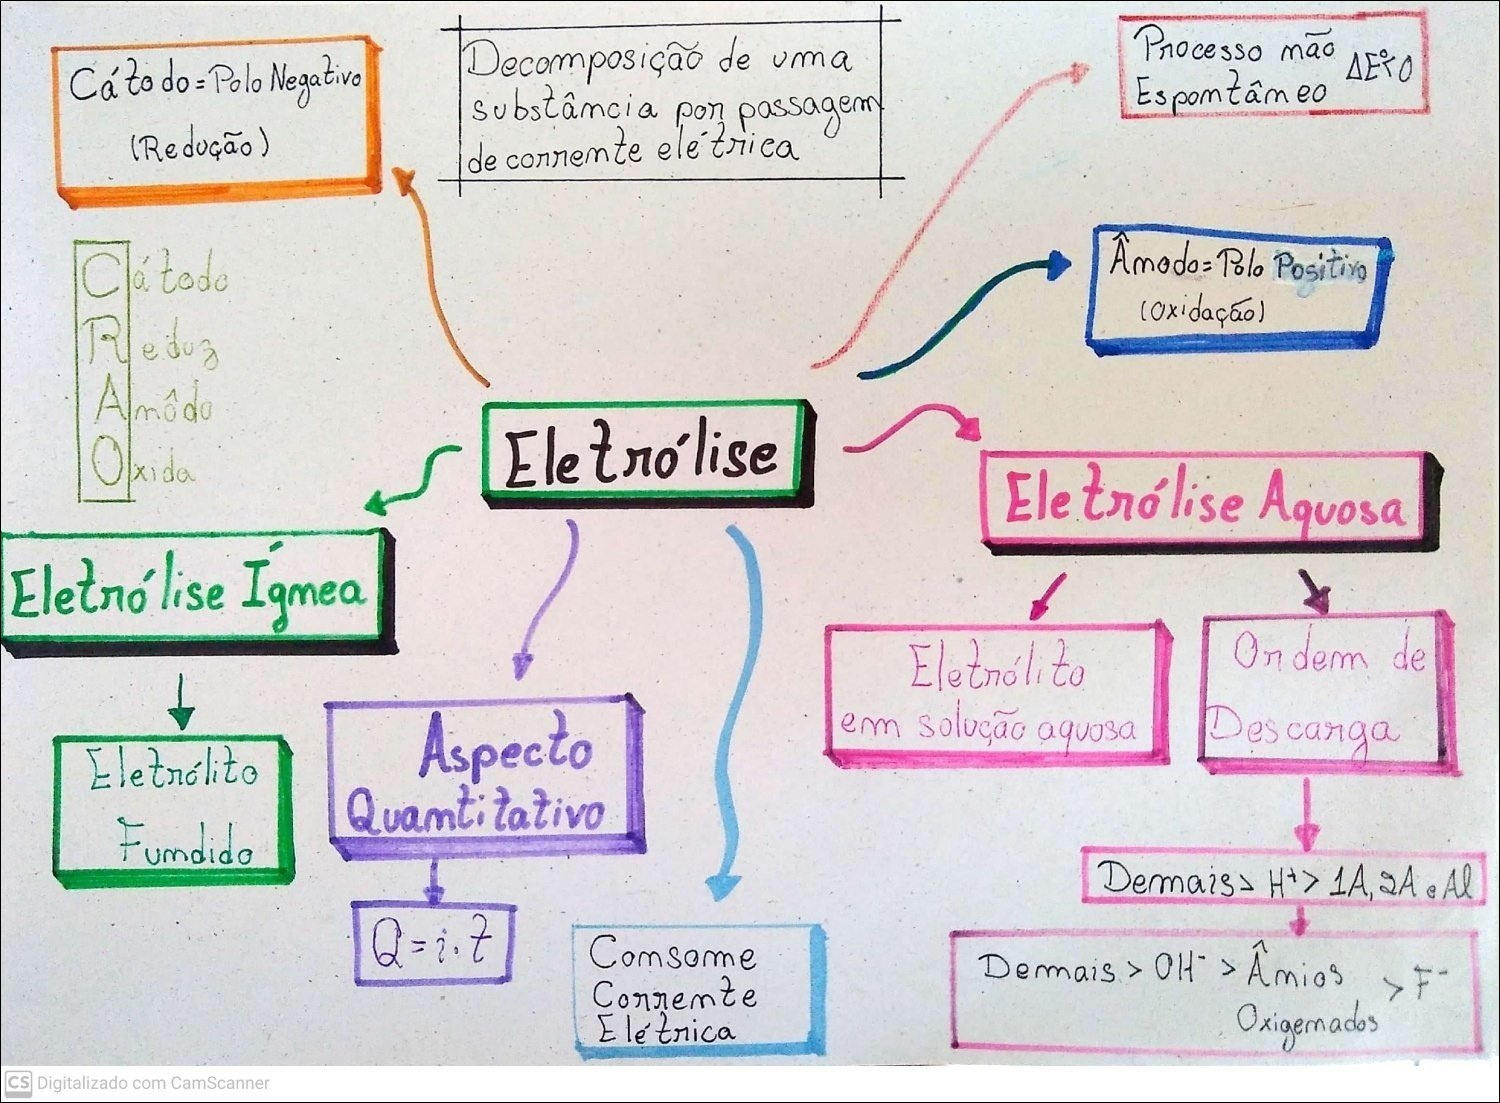 Cátodo = Polo Negativo
(Redução)
Decomposição de uma
substância por passagem
de corrente elétrica
Processo não
Espontâneo ΔE°<0
Ânodo = Polo Positivo
(Oxidação)
Cátodo
Reduz
Anôdo
Oxida
Eletrólise
Eletrólise Ígnea
Eletrólito
Fundido
Aspecto
Quantitativo
Q = i.t
Consome
Corrente
Elétrica
Eletrólise Aquosa
Eletrólito
em solução aquosa
Ordem de
Descarga
Demais > H⁺ > 1A, 2A e Al
Demais > OH⁻ > Ânios > F⁻
Oxigenados
CS Digitalizado com CamScanner